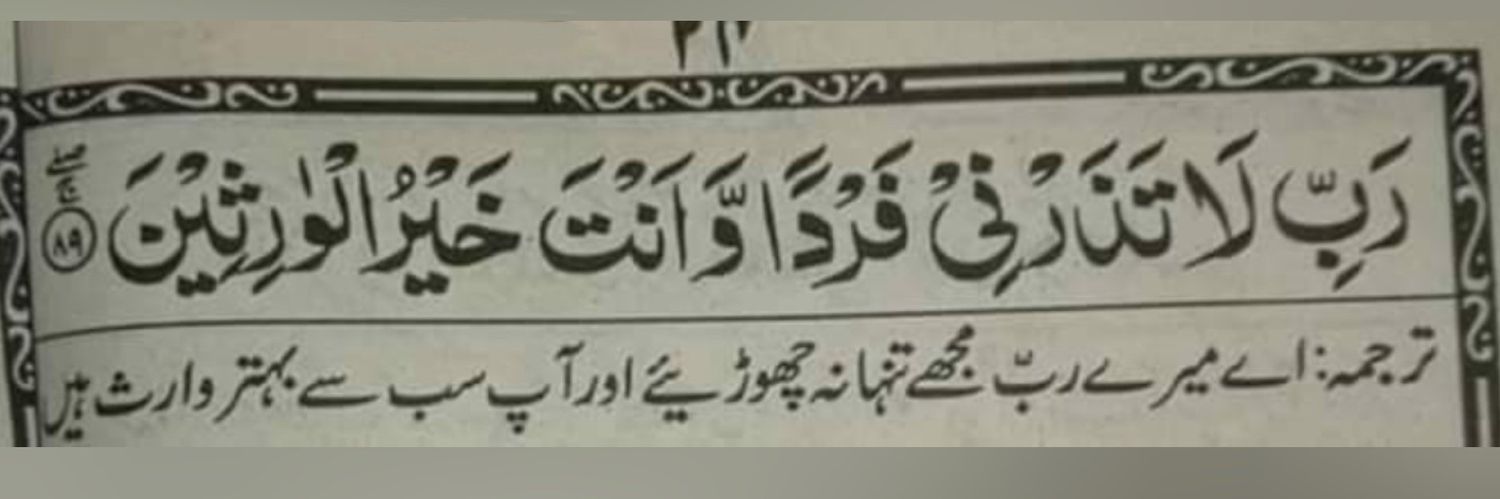 رَبِّ لَا تَذَرْنِيْ فَرْدًا وَّاَنْتَ خَيْرُ الْوٰرِثِيْنَ ۸۹
ترجمہ: اے میرے ربّ مجھے تنہا نہ چھوڑیئے اور آپ سب سے بہتر وارث ہیں